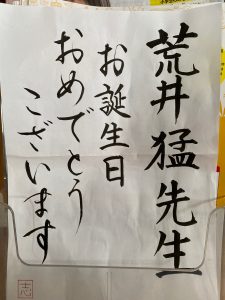 荒井猛先生
お誕生日
おめでとう
ございます
志